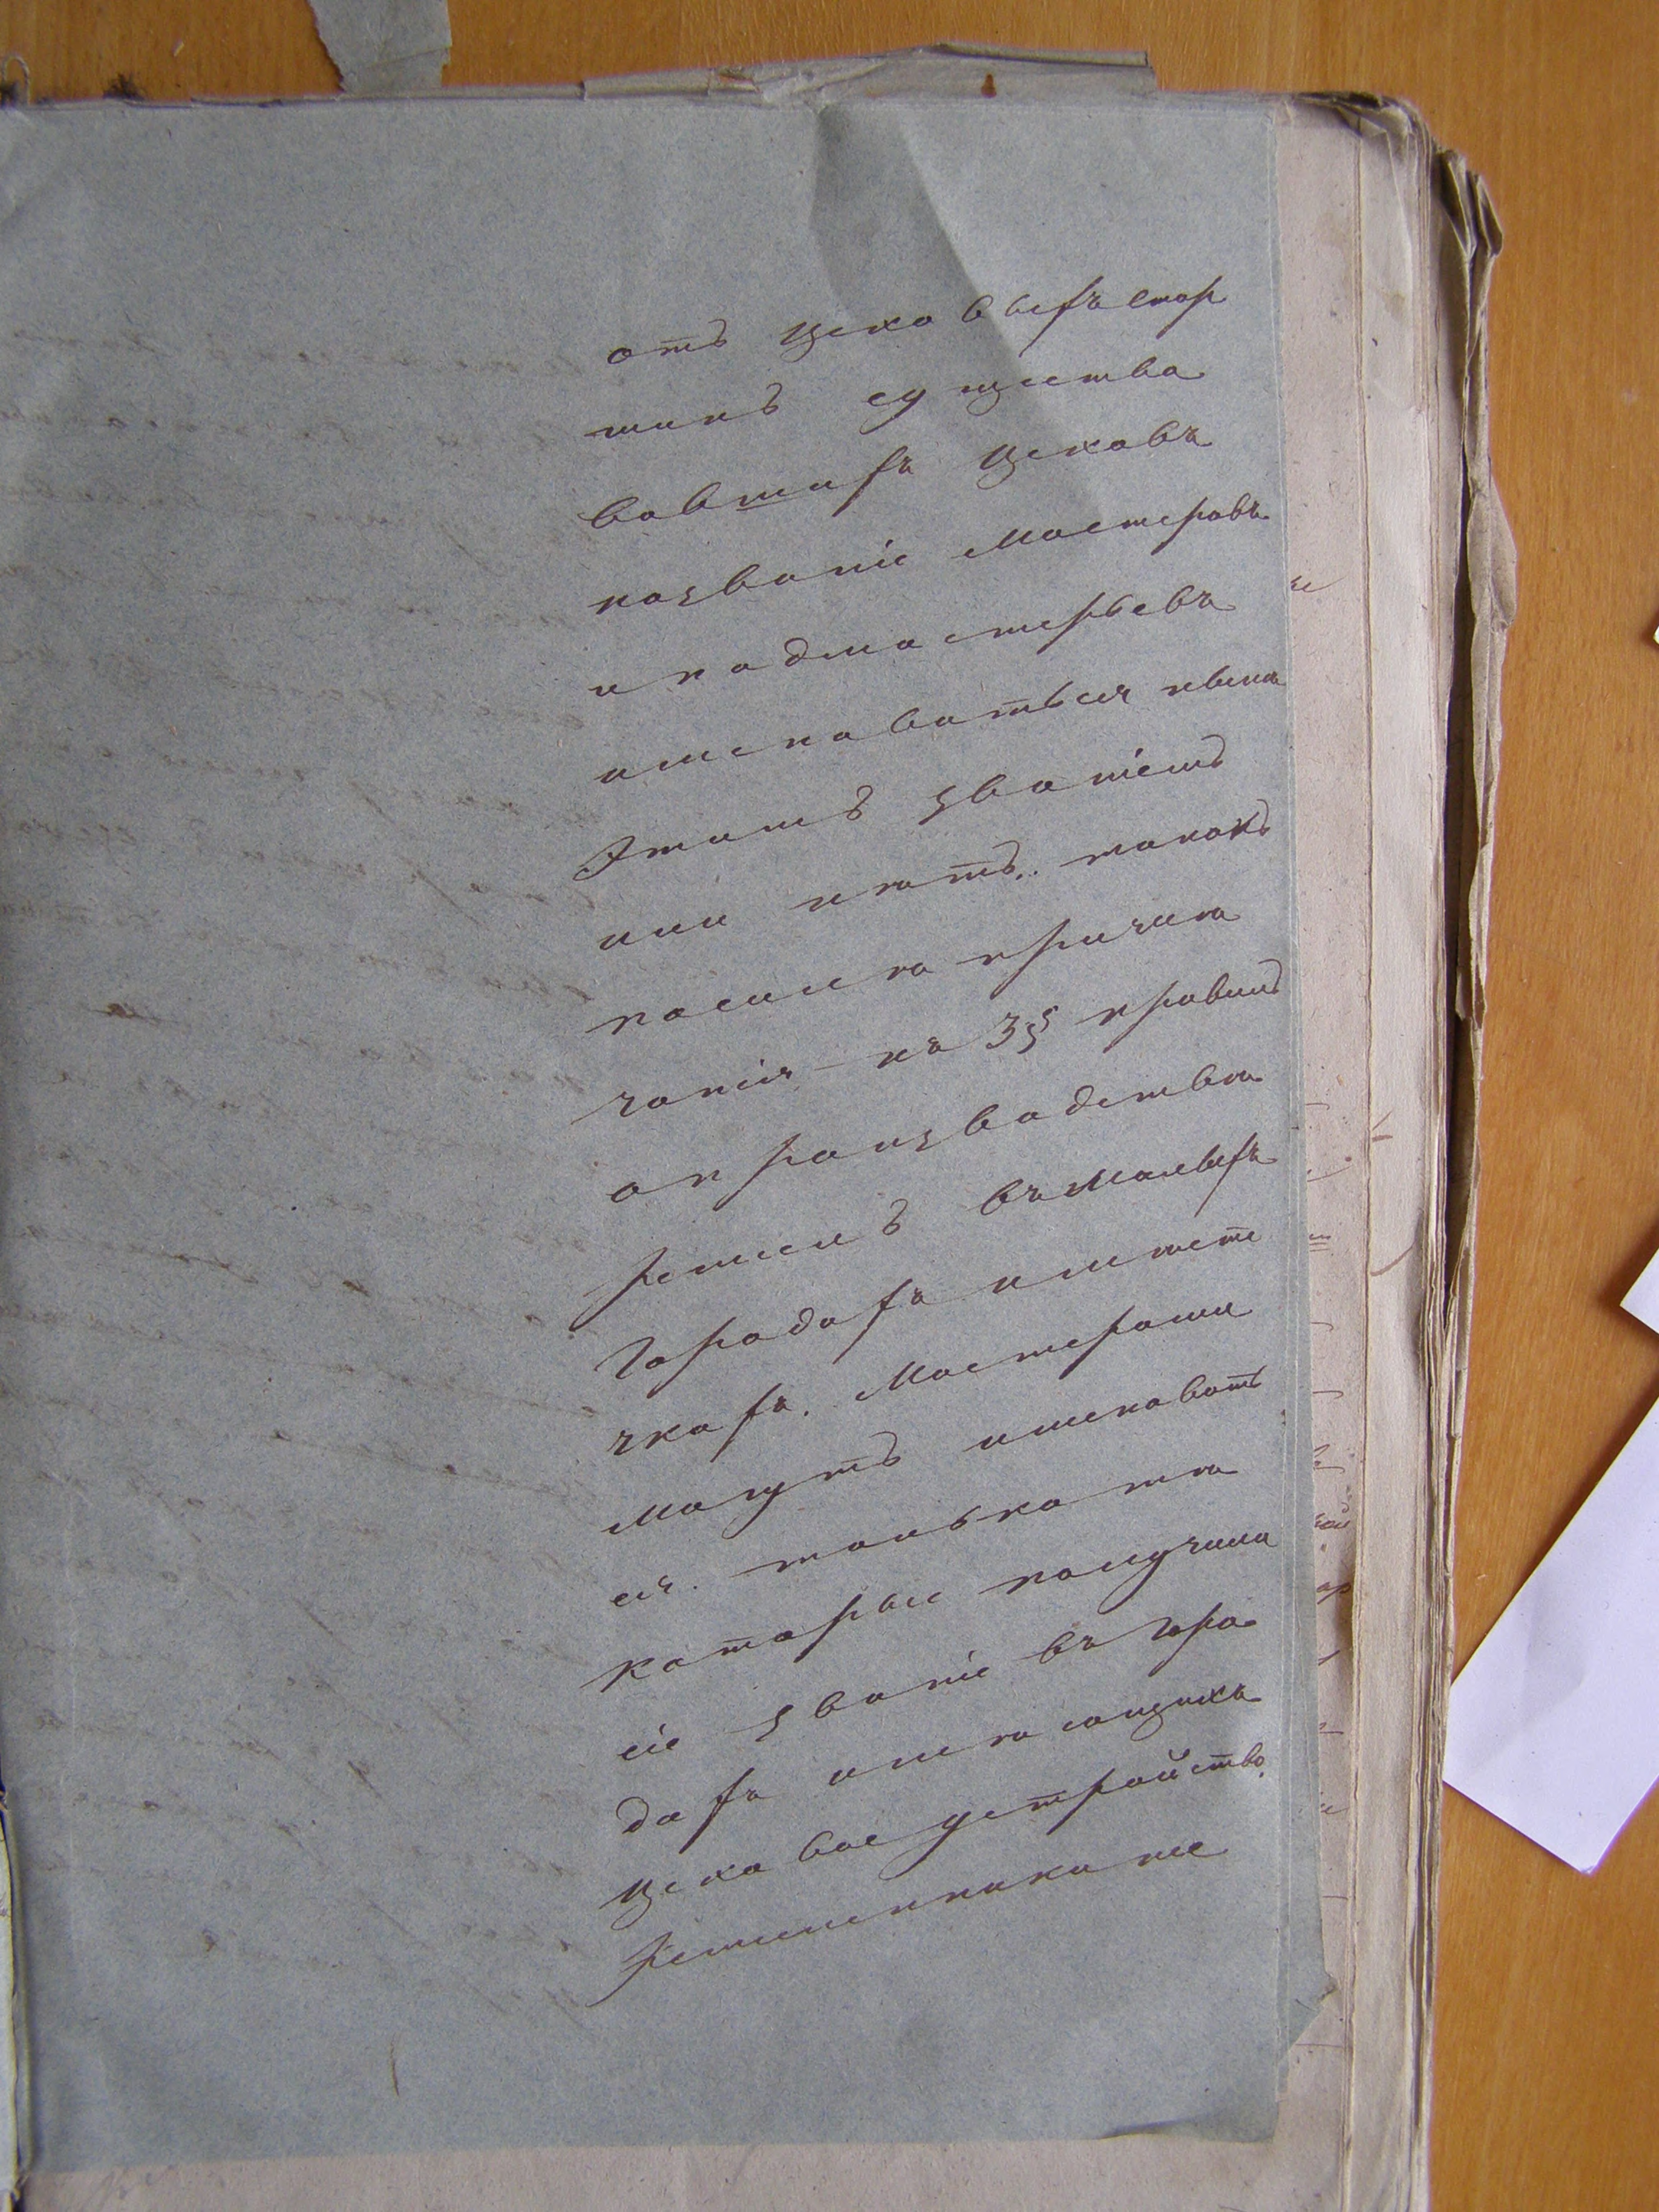 отъ цеховыхъ стар
шинъ существо
вавшихъ цеховъ
названіе мастеровъ
и подмастерьевъ
именоваться нынѣ
этимъ званіемъ
или нѣтъ. такъ какъ
по силѣ примѣ
чанія къ 3§ правилъ
о производствѣ
ремеслъ въ малыхъ
городахъ и мѣсте
чкахъ. Мастерами
могутъ именовать
ся. только тѣ
которые получили
сіе званіе въ горо
дахъ имѣющихъ
цеховое устройство.
Ремесленники же